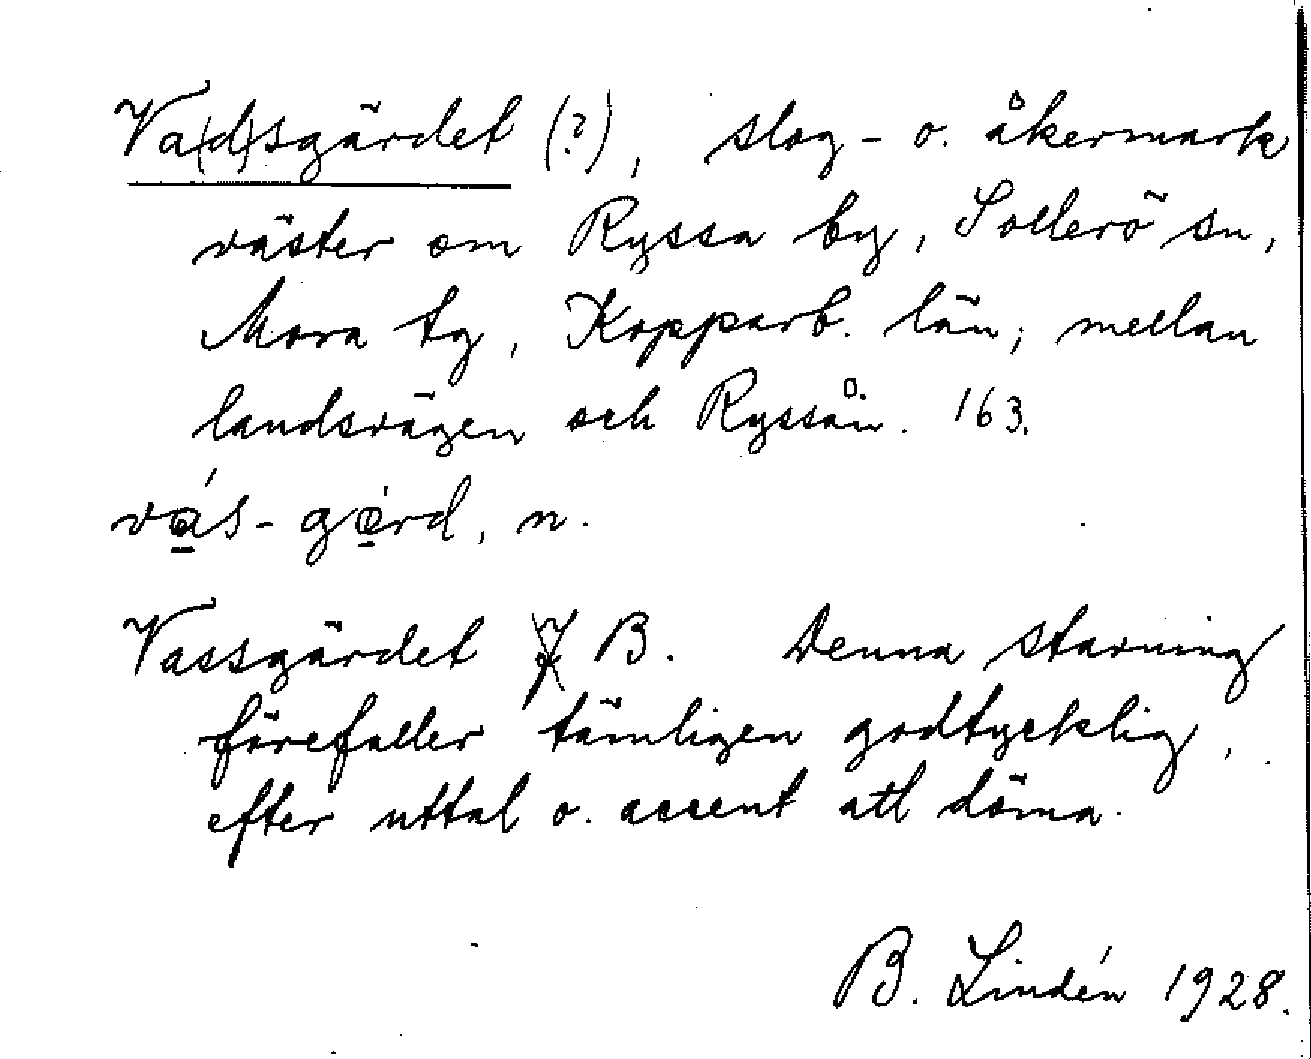 Va(d)sgärdet (?), slog- o. åkermark
väster om Ryssa by, Sollerö sn,
Mora tg, Kopparb. län; mellan
landsvägen och Ryssån. 163.
vás- gärd, n.
Vassgärdet B. Denna stavning
förefaller tämligen godtycklig,
efter uttal o. accent att döma.
B. Lindén 1928.